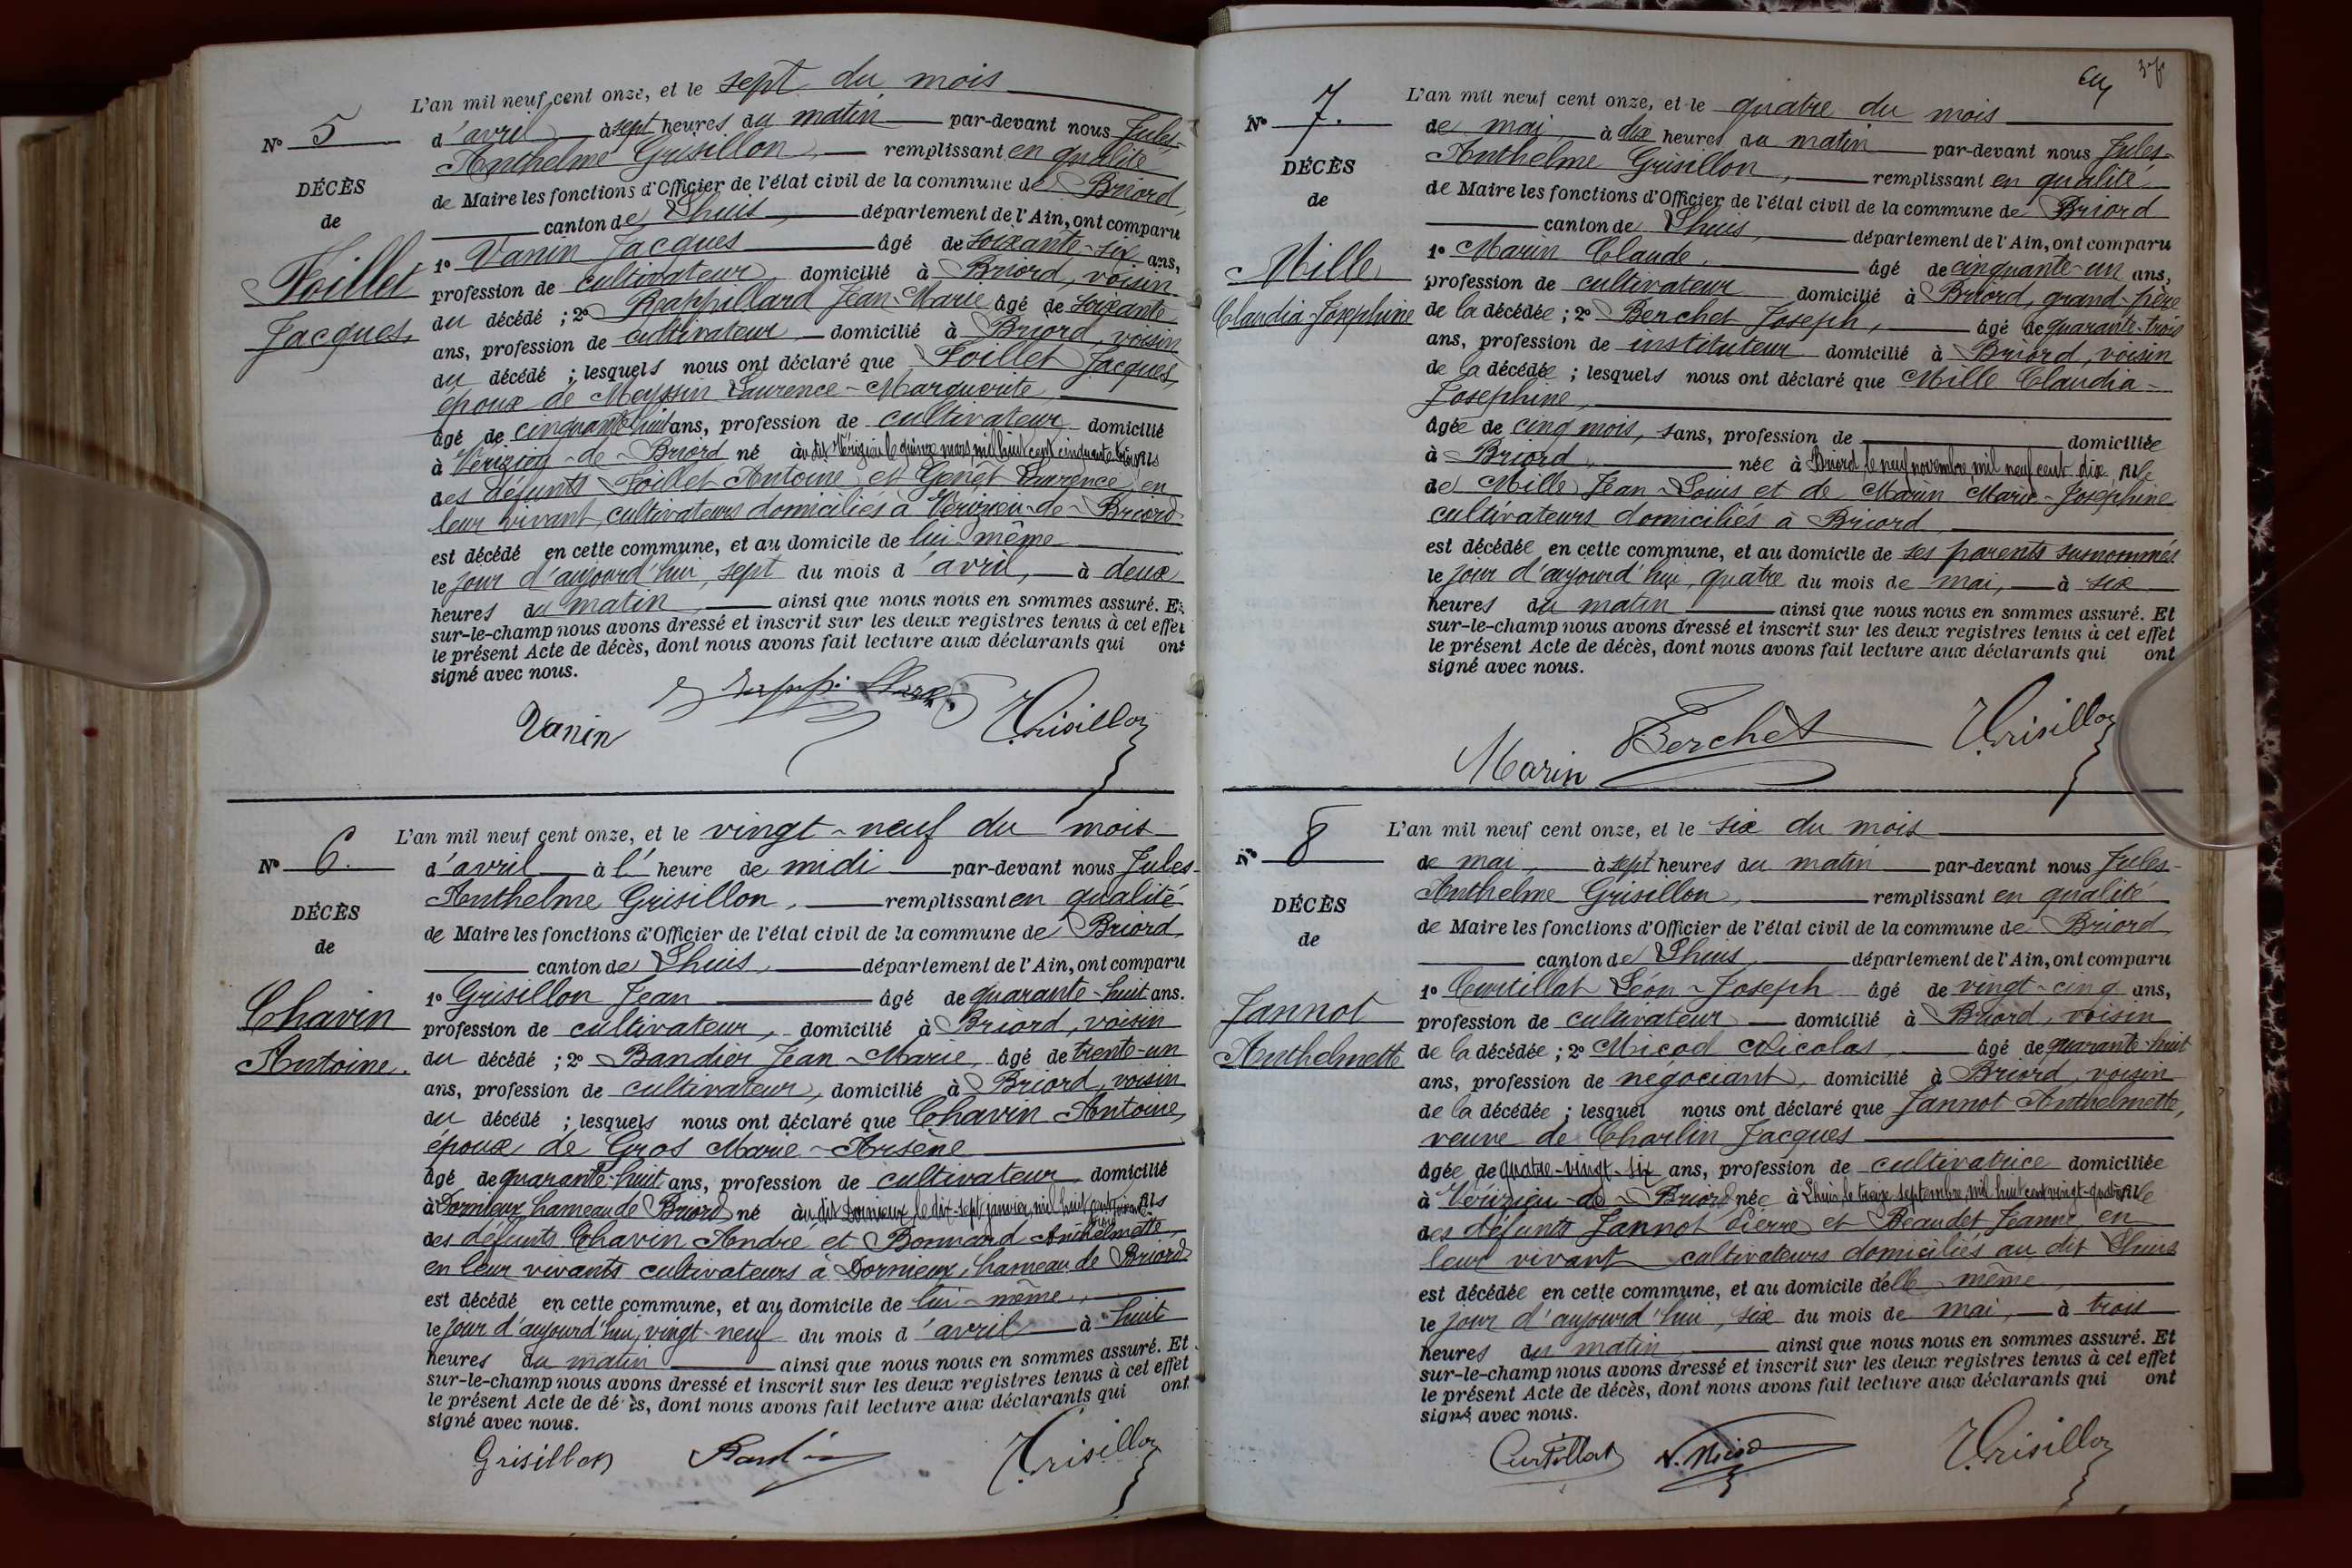 L'an mil neuf cent onze, et le sept du mois
N° 5
d'avril à sept heures du matin par-devant nous Jules-
Anthelme Grisillon, remplissant en qualité
DÉCÈS
de Maire les fonctions d'Officier de l'état civil de la commune de Briord,
de
canton de Lhuis, département de l'Ain, ont comparu
1° Vanin Jacques âgé de soixante-six ans,
Foillet
profession de cultivateur, domicilié à Briord, voisin
Jacques,
du décédé ; 2° Rappillard Jean-Marie âgé de soixante
ans, profession de cultivateur, domicilié à Briord, voisin
du décédé ; lesquels nous ont déclaré que Foillet Jacques,
époux de Meyssin Laurence-Marguerite,
âgé de cinquante huit ans, profession de cultivateur domicilié
à Vérizieu-de-Briord né au dit Vérizieu le quinze mars mil huit cent cinquante trois fils
des défunts Foillet Antoine et Genet Laurence, en
leur vivant, cultivateurs domiciliés à Vérizieu-de-Briord
est décédé en cette commune, et au domicile de lui-même
le jour d'aujourd'hui, sept du mois d'avril, à deux
heures du matin, ainsi que nous nous en sommes assuré. Et
sur-le-champ nous avons dressé et inscrit sur les deux registres tenus à cet effet
le présent Acte de décès, dont nous avons fait lecture aux déclarants qui ont
signé avec nous.
Vanin Grisillon
L'an mil neuf cent onze, et le vingt-neuf du mois
N° 6.
d'avril à l'heure de midi par-devant nous Jules-
Anthelme Grisillon, remplissant en qualité
DÉCÈS
de Maire les fonctions d'Officier de l'état civil de la commune de Briord,
de
canton de Lhuis, département de l'Ain, ont comparu
1° Grisillon Jean âgé de quarante-huit ans.
Chavin
profession de cultivateur, domicilié à Briord, voisin
Antoine.
du décédé ; 2° Bandier Jean-Marie âgé de trente-un
ans, profession de cultivateur, domicilié à Briord, voisin
du décédé ; lesquels nous ont déclaré que Chavin Antoine,
époux de Gros Marie-Arsène
âgé de quarante-huit ans, profession de cultivateur domicilié
à Dornieux hameau de Briord né au dit Dornieux le dix-sept janvier mil huit cent soixante trois fils
des défunts Chavin André et Bonnard Anthelmette,
en leur vivants cultivateurs à Dornieux, hameau de Briord
est décédé en cette commune, et au domicile de lui-même,
le jour d'aujourd'hui, vingt-neuf du mois d'avril à huit
heures du matin ainsi que nous nous en sommes assuré. Et
sur-le-champ nous avons dressé et inscrit sur les deux registres tenus à cet effet
le présent Acte de décès, dont nous avons fait lecture aux déclarants qui ont
signé avec nous.
Grisillon Grisillon
L'an mil neuf cent onze, et le quatre du mois
N° 7.
de mai, à dix heures du matin par-devant nous Jules-
Anthelme Grisillon, remplissant en qualité
DÉCÈS
de Maire les fonctions d'Officier de l'état civil de la commune de Briord
de
canton de Lhuis, département de l'Ain, ont comparu
1° Marin Claude, âgé de cinquante-un ans,
Mille
profession de cultivateur domicilié à Briord, grand-père
Claudia-Joséphine
de la décédée ; 2° Berchet Joseph, âgé de quarante-trois
ans, profession de instituteur domicilié à Briord, voisin
de la décédée ; lesquels nous ont déclaré que Mille Claudia-
Joséphine,
âgée de cinq mois, sans, profession de domiciliée
à Briord, née à Briord, le neuf novembre mil neuf cent dix, fille
de Mille Jean-Louis et de Marin Marie-Joséphine
cultivateurs domiciliés à Briord
est décédée en cette commune, et au domicile de ses parents susnommés
le jour d'aujourd'hui, quatre du mois de mai, à six
heures du matin ainsi que nous nous en sommes assuré. Et
sur-le-champ nous avons dressé et inscrit sur les deux registres tenus à cet effet
le présent Acte de décès, dont nous avons fait lecture aux déclarants qui ont
signé avec nous.
Marin Berchet Grisillon
L'an mil neuf cent onze, et le six du mois
N° 8
de mai, à sept heures du matin par-devant nous Jules-
Anthelme Grisillon, remplissant en qualité
DÉCÈS
de Maire les fonctions d'Officier de l'état civil de la commune de Briord,
de
canton de Lhuis, département de l'Ain, ont comparu
1° Curtillat Léon-Joseph âgé de vingt-cinq ans,
Jannot
profession de cultivateur domicilié à Briord, voisin
Anthelmette
de la décédée ; 2° Micod Nicolas, âgé de quarante-huit
ans, profession de négociant, domicilié à Briord, voisin
de la décédée ; lesquel nous ont déclaré que Jannot Anthelmette,
veuve de Charlin Jacques
âgée de quatre-vingt-six ans, profession de cultivatrice domiciliée
à Vérizieu-de-Briord née à Lhuis le treize septembre, mil huit cent vingt-quatre fille
des défunts Jannot Pierre et Beaudet Jeanne, en
leur vivant cultivateurs domiciliés au dit Lhuis
est décédée en cette commune, et au domicile d'elle-même,
le jour d'aujourd'hui, six du mois de mai, à trois
heures du matin, ainsi que nous nous en sommes assuré. Et
sur-le-champ nous avons dressé et inscrit sur les deux registres tenus à cet effet
le présent Acte de décès, dont nous avons fait lecture aux déclarants qui ont
signé avec nous.
Curtillat N. Micod Grisillon